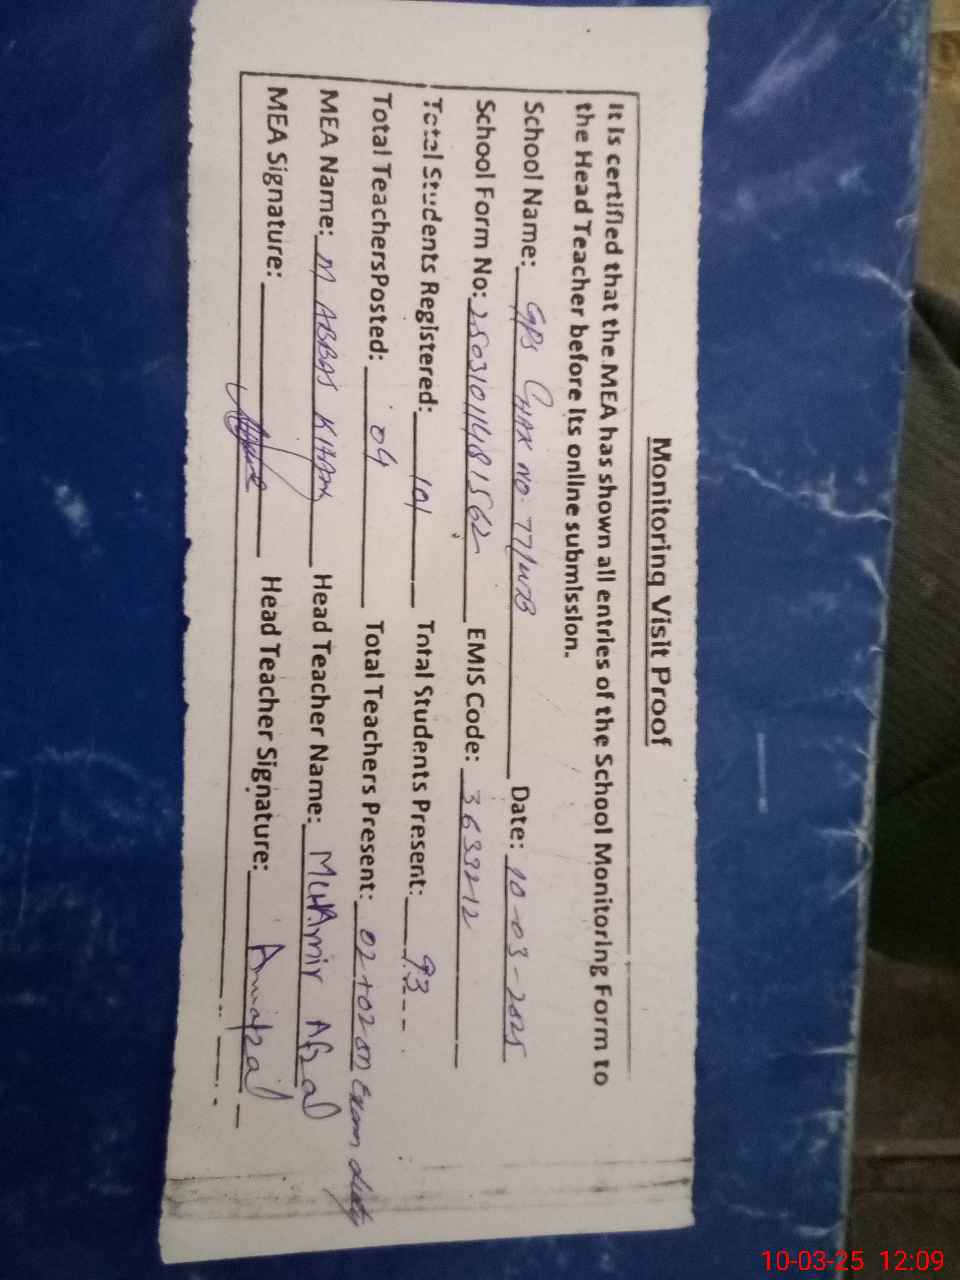 Monitoring Visit Proof
It is certified that the MEA has shown all entries of the School Monitoring Form to
the Head Teacher before its online submission.
School Name: GPS CHAK NO. 77/WB Date: 10-03-2025
School Form No: EMIS Code:
Total Students Registered: 101 Total Students Present: 93
Total Teachers Posted: 04 Total Teachers Present: 02+02 on Exam duty
MEA Name: M ABBAS KHAN Head Teacher Name: Afzal
MEA Signature: Head Teacher Signature:
10-03-25 12:09